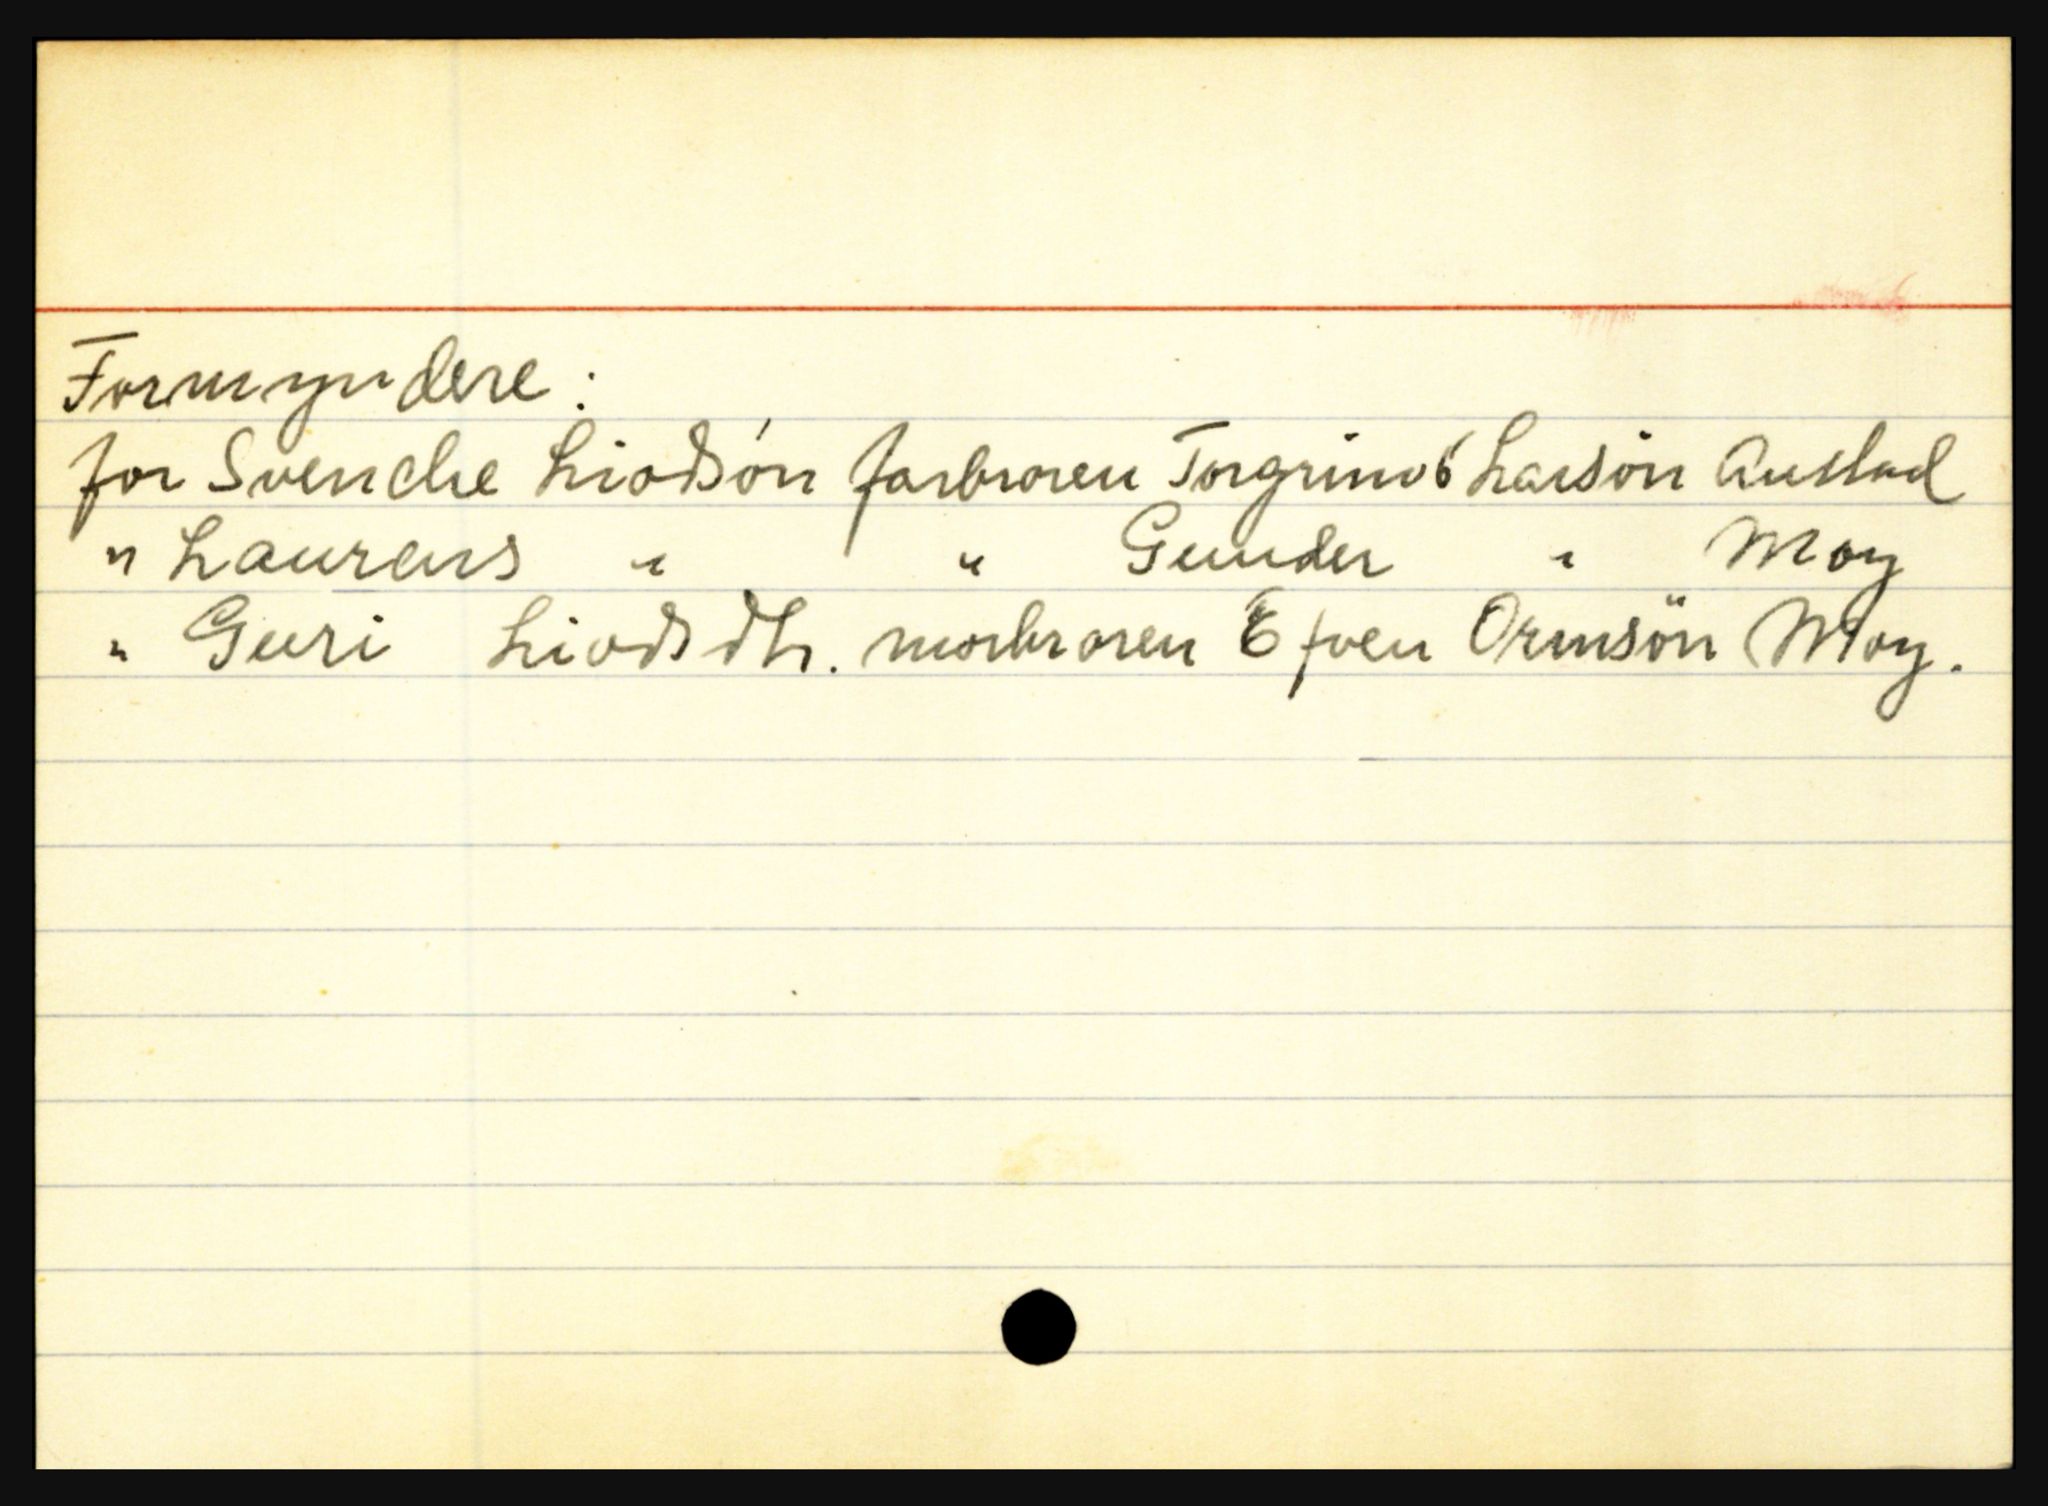 Formyndere:
for Svenche Liodsön farbroren Torgrim Larsön Austad
" Laurens " " Gunder " Moy
" Guri Liodsdtr. morbroren Efven Ormsön Moy.